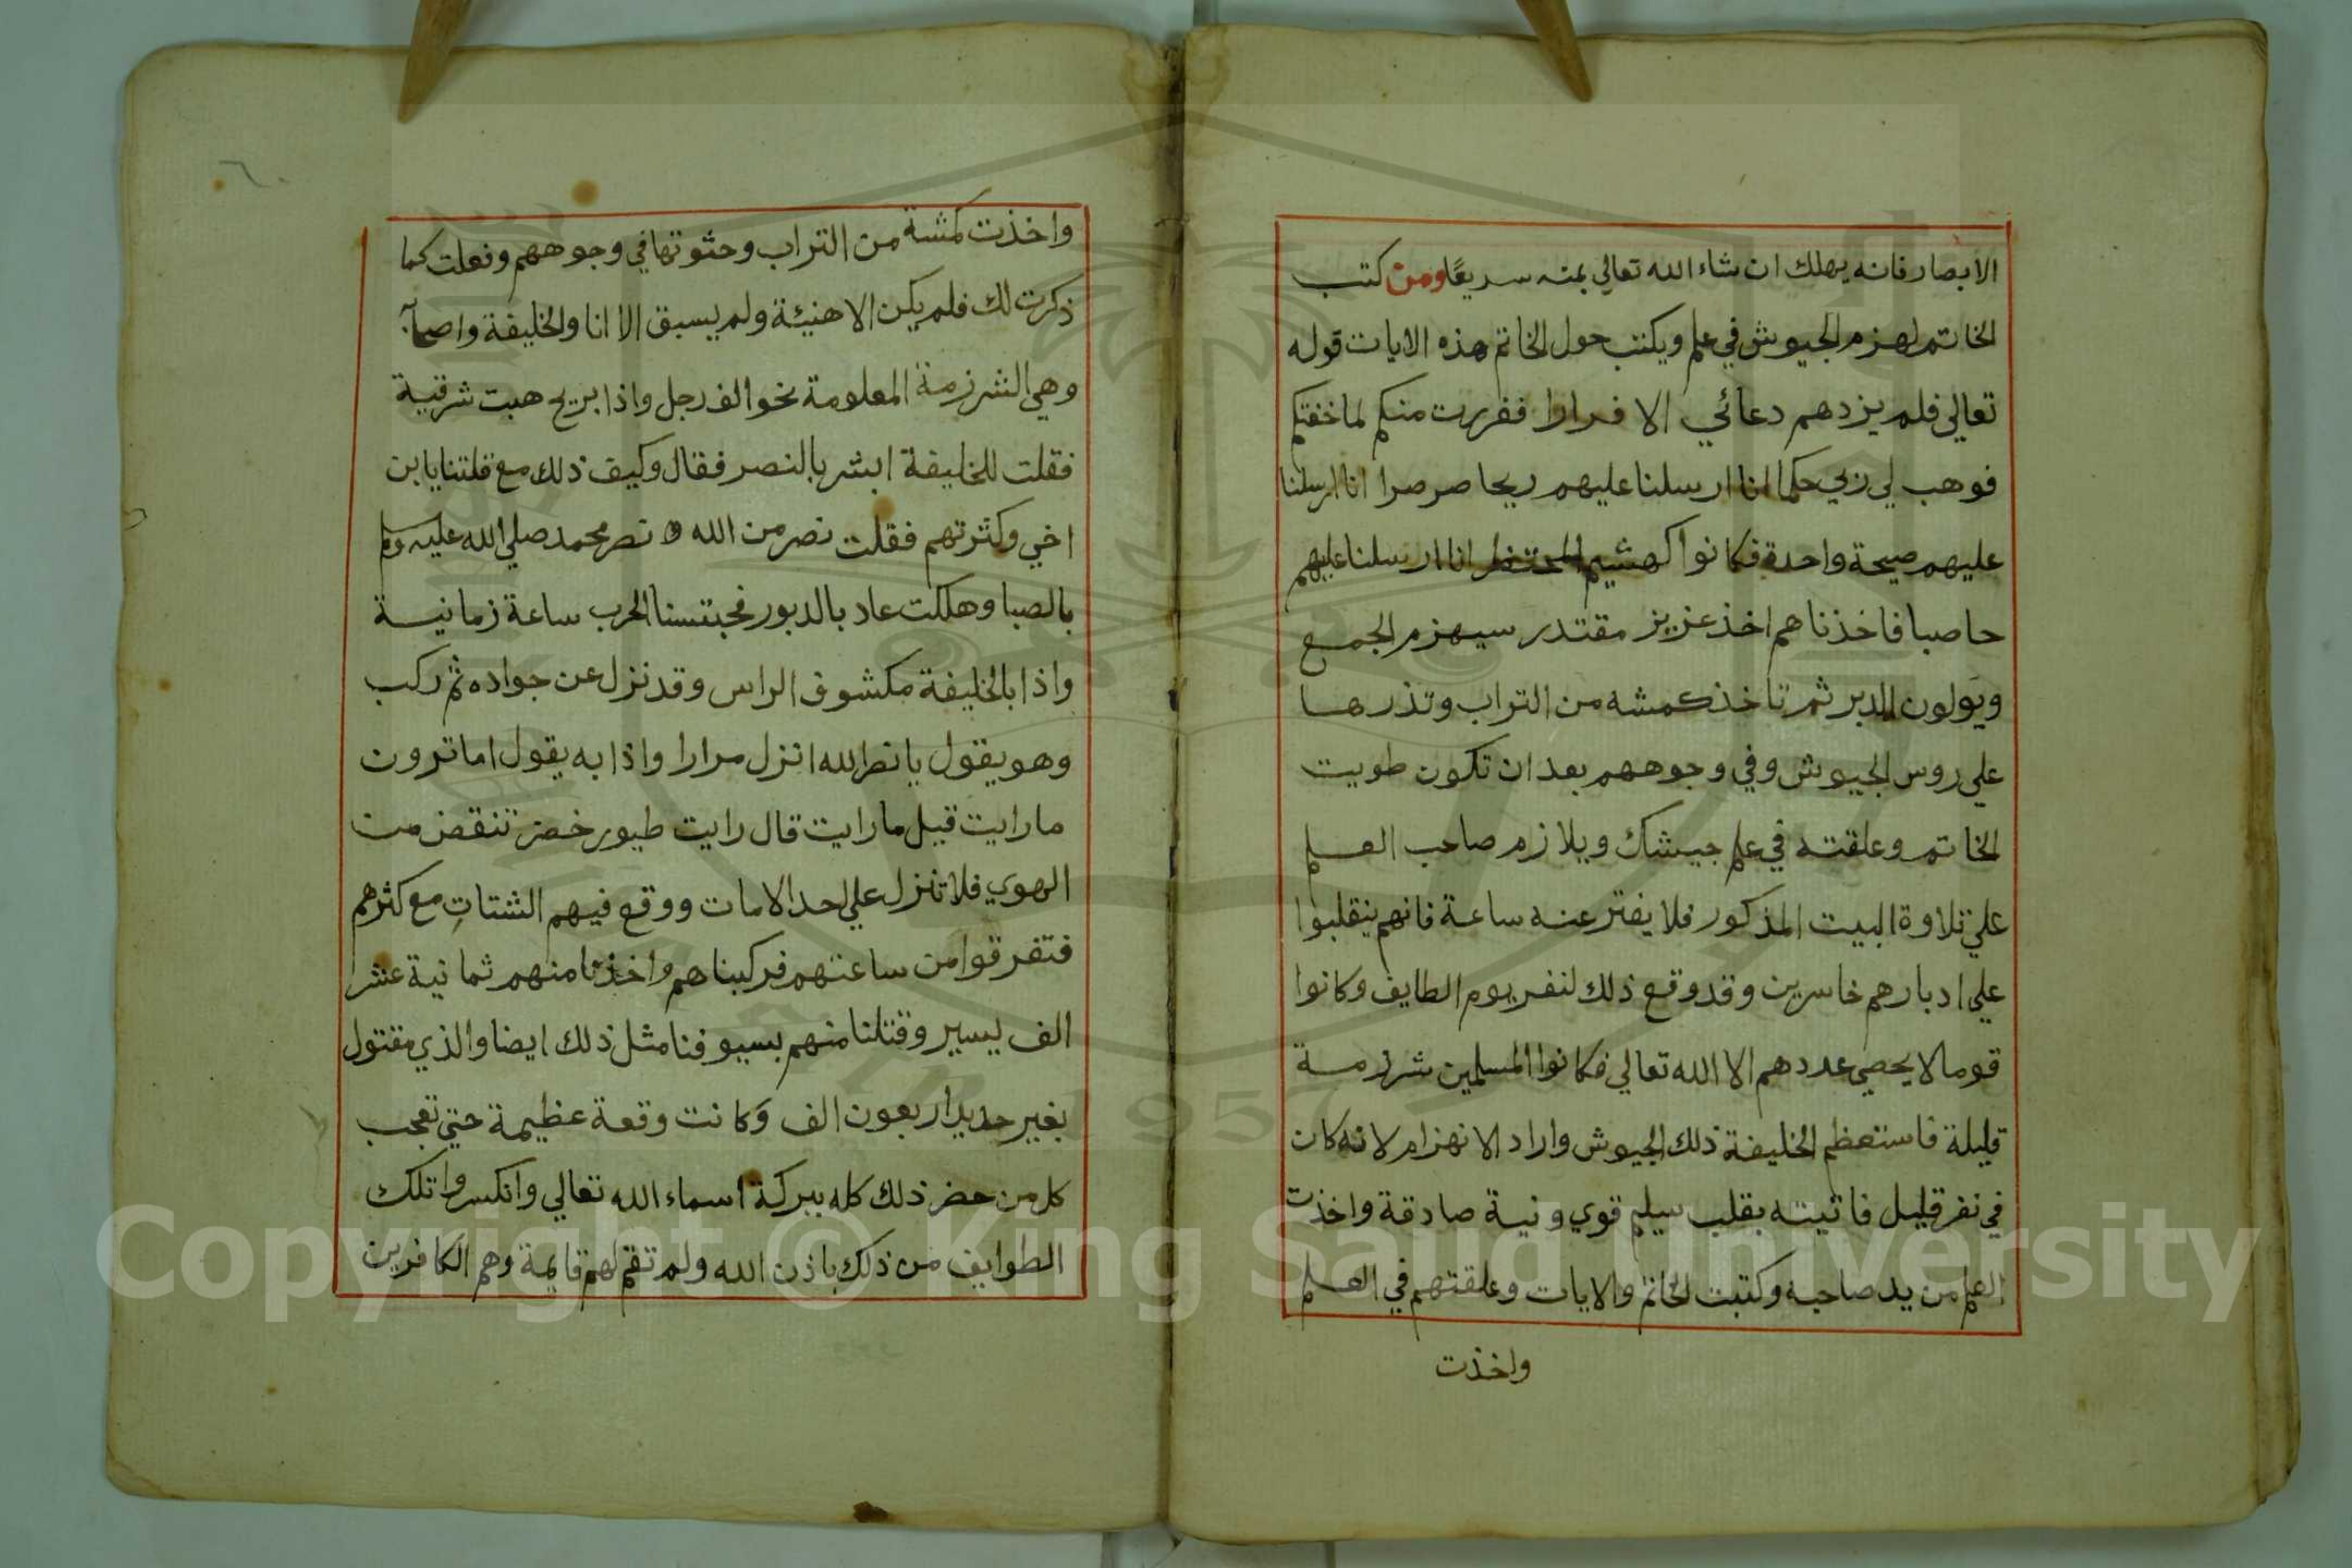 الابصار فانه يهلك ان شاء الله تعالي بمنه سريعًا ومن كتب
الخاتم لهزم الجيوش في علم ويكتب حول الخاتم هذه الايات قوله
تعالي فلم يزدهم دعائي الا فرارا ففررت منكم لما خفتكم
فوهب لي ربي حكما انا ارسلنا عليهم ريحا صرصرا انا ارسلنا
عليهم صيحة واحدة فكانوا كهشيم المحتظر انا ارسلنا عليهم
حاصبا فاخذناهم اخذ عزيز مقتدر سيهزم الجمع
ويولون الدبر ثم تاخذ كمشه من التراب وتذرها
علي روس الجيوش وفي وجوههم بعد ان تكون طويت
الخاتم وعلقته في علم جيشك ويلازم صاحب العلم
علي تلاوة البيت المذكور فلا يفتر عنه ساعة فانهم ينقلبوا
علي ادبارهم خاسرين وقد وقع ذلك لنفر يوم الطايف وكانوا
قوما لا يحصي عددهم الا الله تعالي فكانوا المسلمين شرزمة
قليلة فاستعظم الخليفة ذلك الجيوش واراد الانهزام لانه كان
في نفر قليل فاتيته بقلب سليم قوي ونية صادقة واخذت
العلم من يد صاحبه وكتبت الخاتم والايات وعلقتهم في العلم
واخذت
واخذت كمشة من التراب وحثوتها في وجوههم وفعلت كما
ذكرت لك فلم يكن الا هنيئة ولم يسبق الا انا والخليفة واصحابه
وهي الشرزمة المعلومة نحو الف رجل واذا بريح هبت شرقية
فقلت للخليفة ابشر بالنصر فقال وكيف ذلك مع قلتنا يا بن
اخي وكثرتهم فقلت نصر من الله و نصر محمد صلي الله عليه وسلم
بالصبا وهلكت عاد بالدبور الحرب ساعة زمانية
واذا بالخليفة مكشوف الراس وقد نزل عن جواده ثم ركب
وهو يقول يا نصر الله انزل مرارا واذا به يقول اما ترون
ما رايت قيل ما رايت قال رايت طيور خضر تنقض من
الهوي فلا تنزل علي احد الا مات ووقع فيهم الشتات مع كثرهم
فتفرقوا من ساعتهم فركبناهم واخذنا منهم ثمانية عشر
الف يسير وقتلنا منهم بسيوفنا مثل ذلك ايضا والذي مقتول
بغير حديد اربعون الف وكانت وقعة عظيمة حتي تعجب
كل من حضر ذلك كله ببركة اسماء الله تعالي وانكسروا تلك
الطوايف من ذلك باذن الله ولم تقم لهم قايمة وهم الكافرين
Copyright © King Saud University
1957